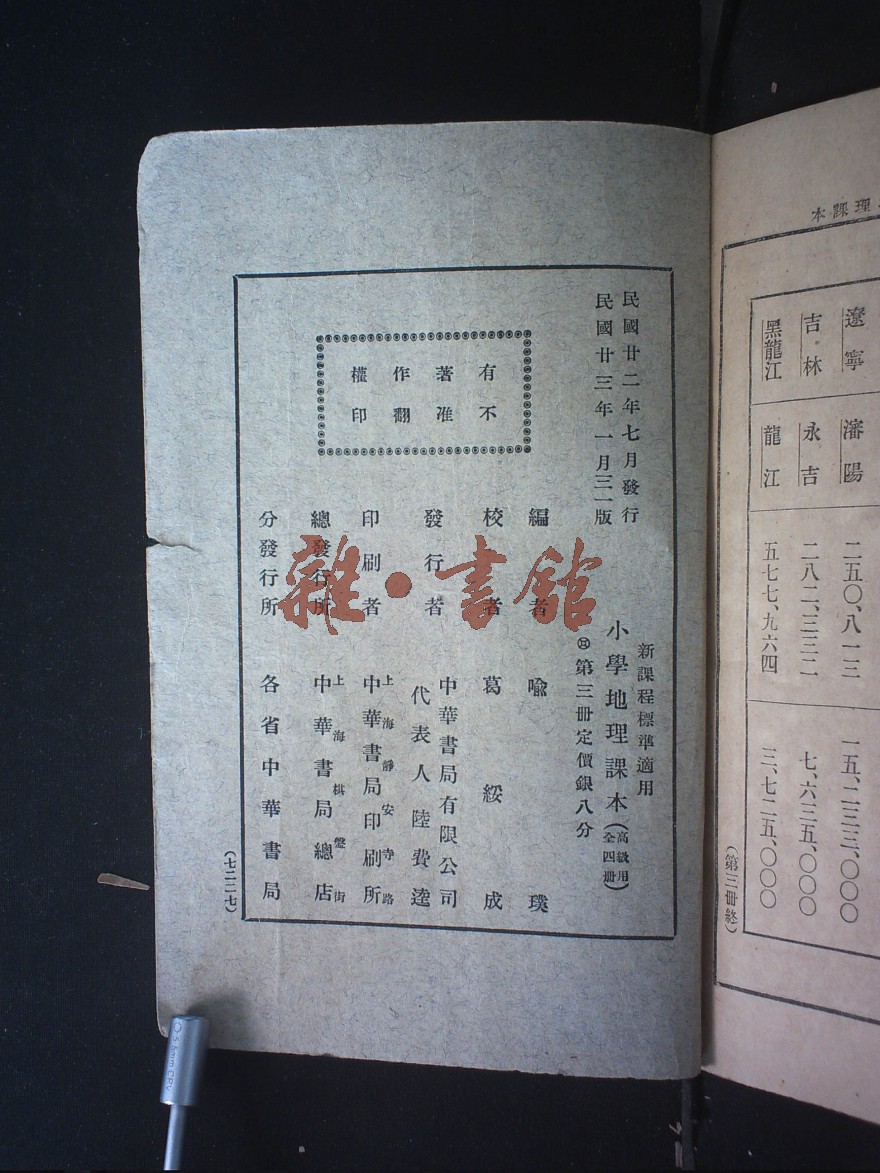 理課本
遼寧 瀋陽 二五〇、八一三 一五、二三三、〇〇〇
吉林 永吉 二八二、三三二 七、六三五、〇〇〇
黑龍江 龍江 五七七、九六四 三、七二五、〇〇〇
(第三冊終)
民國廿二年七月發行
民國廿三年一月三一版
有著作權
不准翻印
新課程標準適用
小學地理課本(高級用全四冊)
第三冊定價銀八分
編者 喩璞
校者 葛綏成
發行者 中華書局有限公司
代表人陸費逵
印刷者 上海靜安寺路
中華書局印刷所
總發行所 上海棋盤街
中華書局總店
分發行所 各省中華書局
(七二二七)
雜·書館